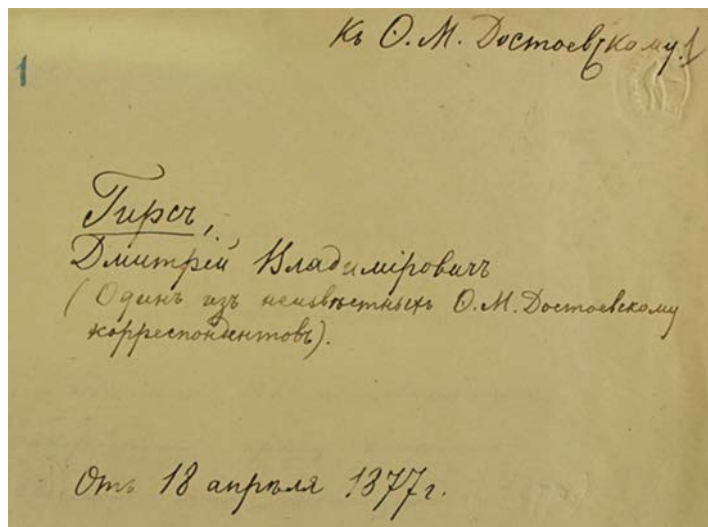 Къ Ѳ. М. Достоевскому. 1
1
Гирсъ,
Дмитрій Владиміровичъ
(Одинъ изъ неизвѣстныхъ Ѳ. М. Достоевскому
корреспондентовъ).
Отъ 18 апрѣля 1877 г.